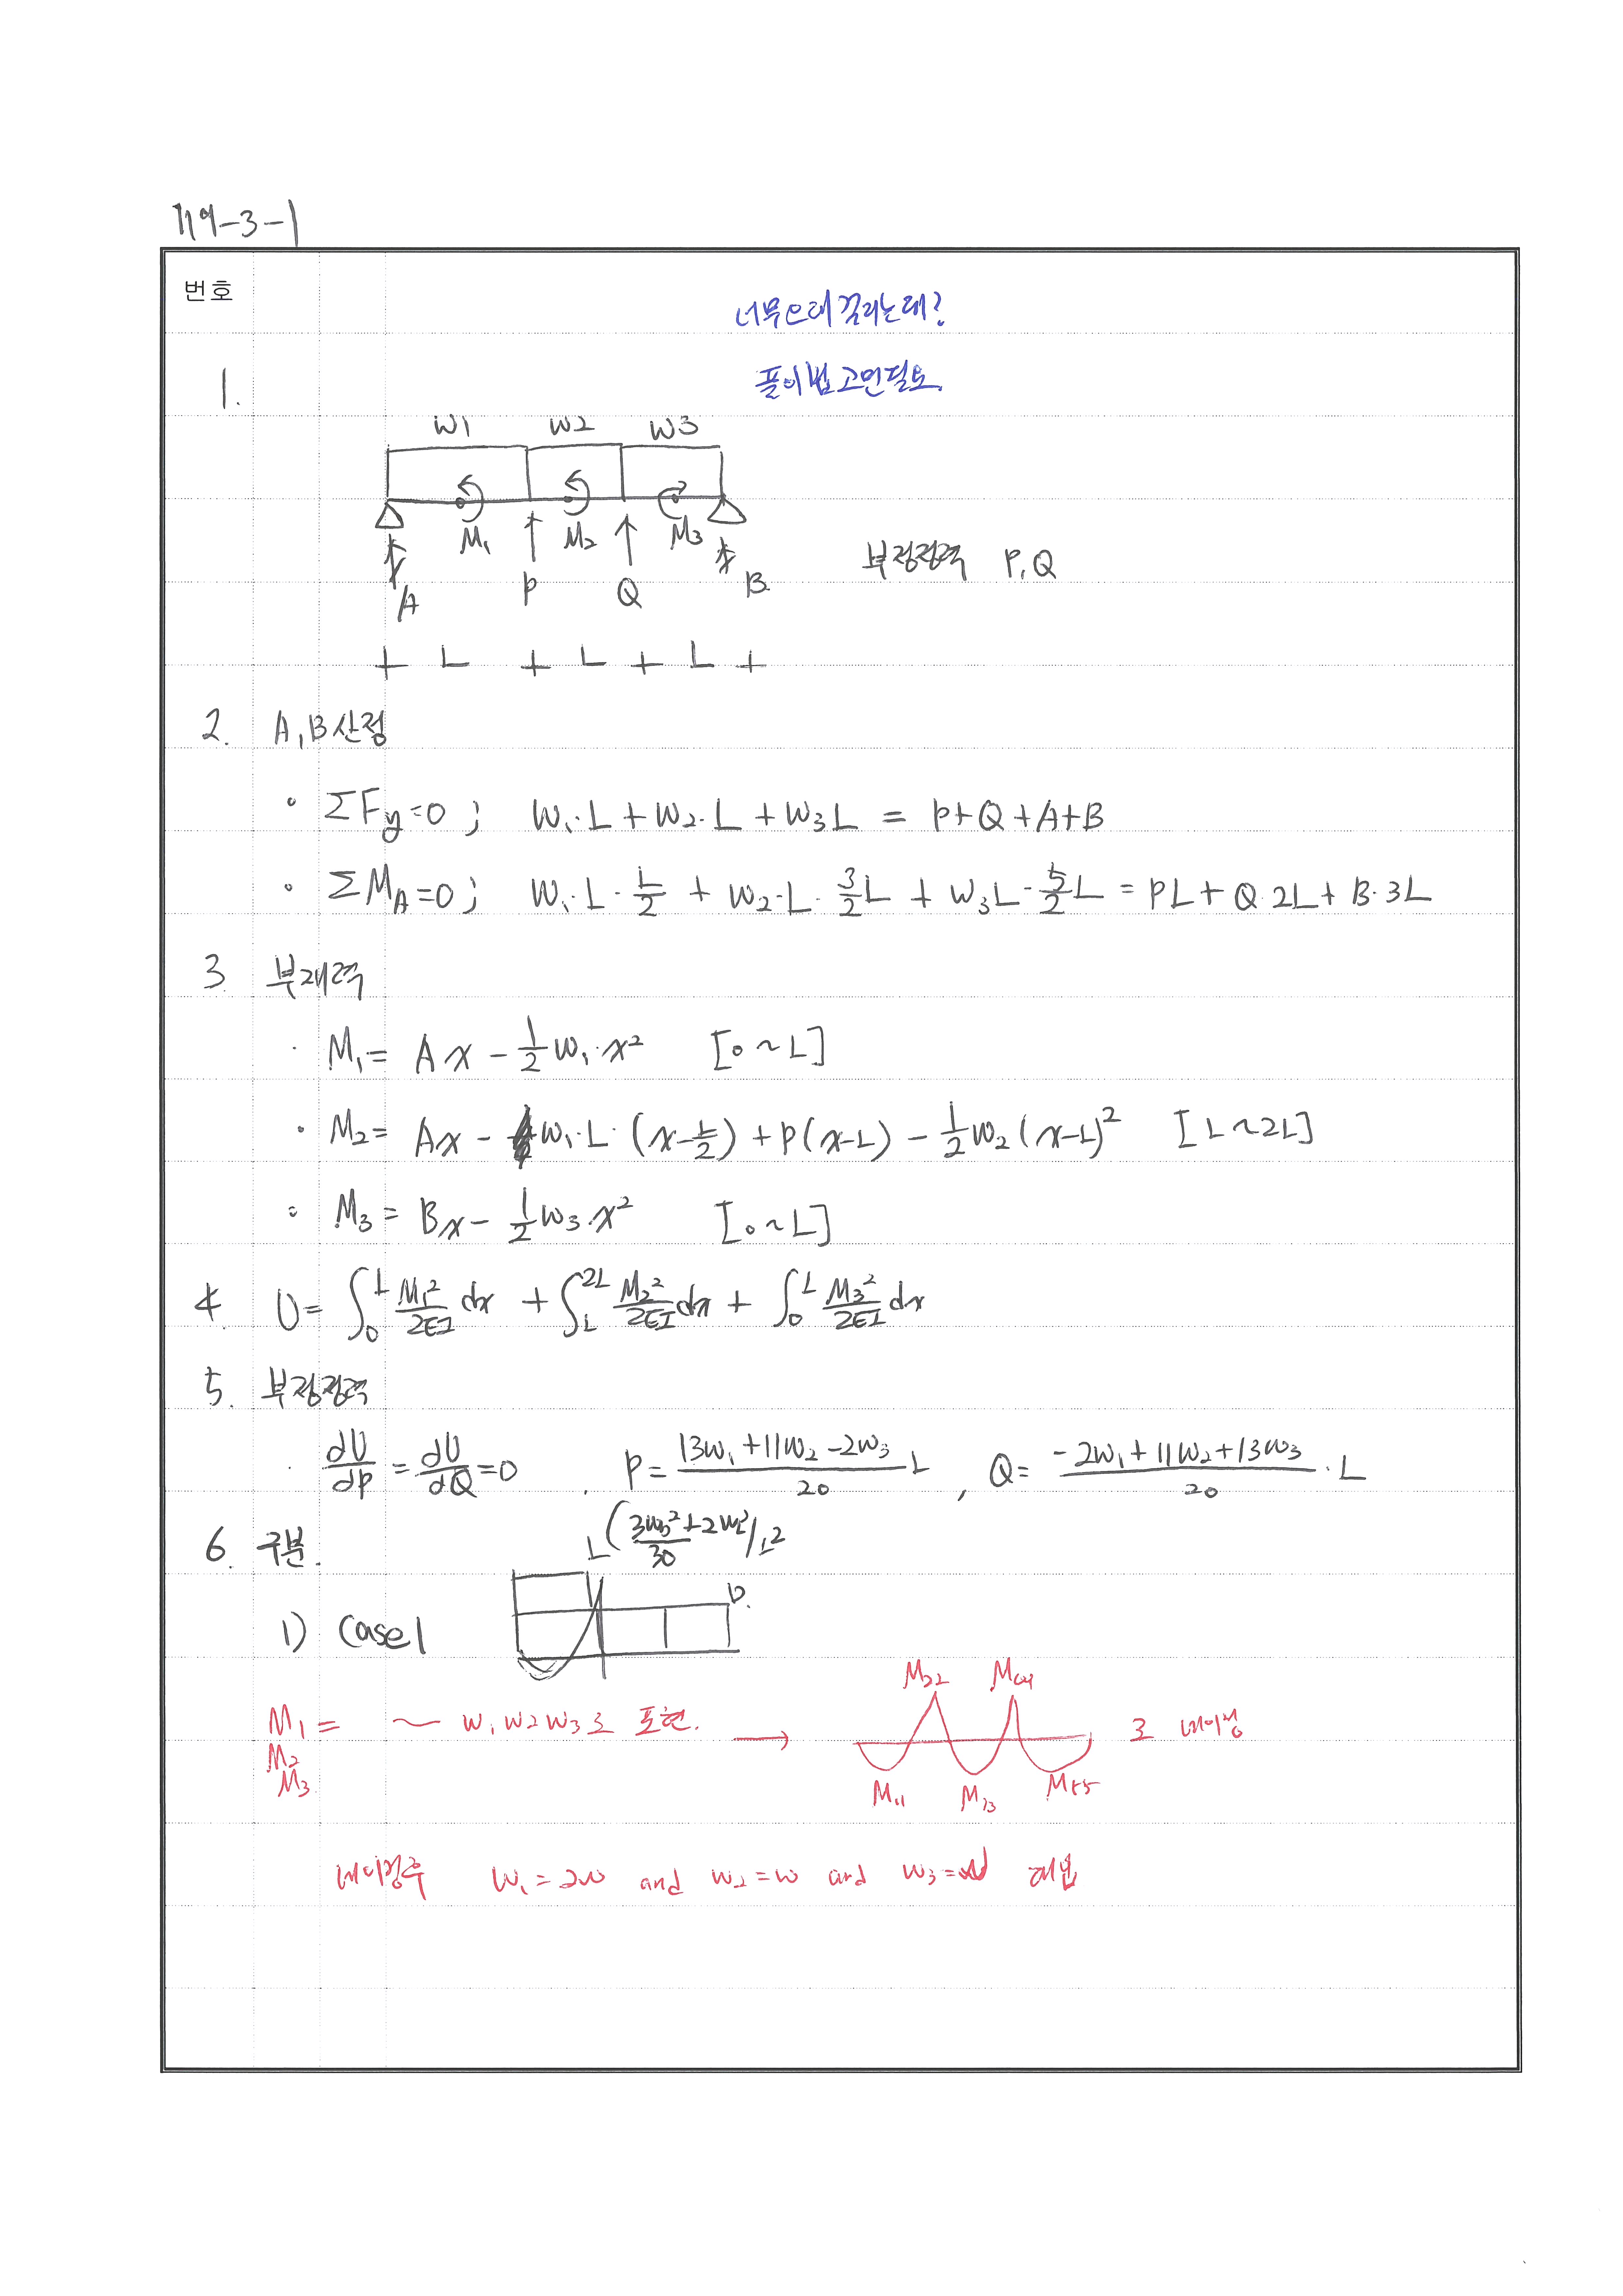 119-3-1
번호
너무 오래 걸리는데?
풀이법 고민필요.
1.
w1 w2 w3
M₁ M₂ M₃
A P Q B
부정정력 P, Q
L L L
2. A, B 산정
• ΣFy=0 ; w₁·L + w₂·L + w₃L = P+Q+A+B
• ΣM_A=0 ; w₁·L·L/2 + w₂·L·3/2L + w₃L·5/2L = PL + Q·2L + B·3L
3 부재력
· M₁= Ax - 1/2 w₁·x² [0~L]
· M₂= Ax - w₁·L·(x-L/2) + P(x-L) - 1/2 w₂(x-L)² [L~2L]
· M₃ = Bx - 1/2 w₃·x² [0~L]
4 U= ∫₀^L M₁²/2EI dx + ∫_L^2L M₂²/2EI dx + ∫₀^L M₃²/2EI dx
5. 부정정력
· dU/dP = dU/dQ = 0 . P= (13w₁+11w₂-2w₃)/20 L , Q= (-2w₁+11w₂+13w₃)/20 · L
6. 구분.
1) Case1
M₁ = ~ w₁ w₂ w₃로 표현. → 로 네이밍
M₂
M₃
M₂₂
M₁₁ M₅₅
네이밍후 w₁=2w and w₂=w and w₃= 대입